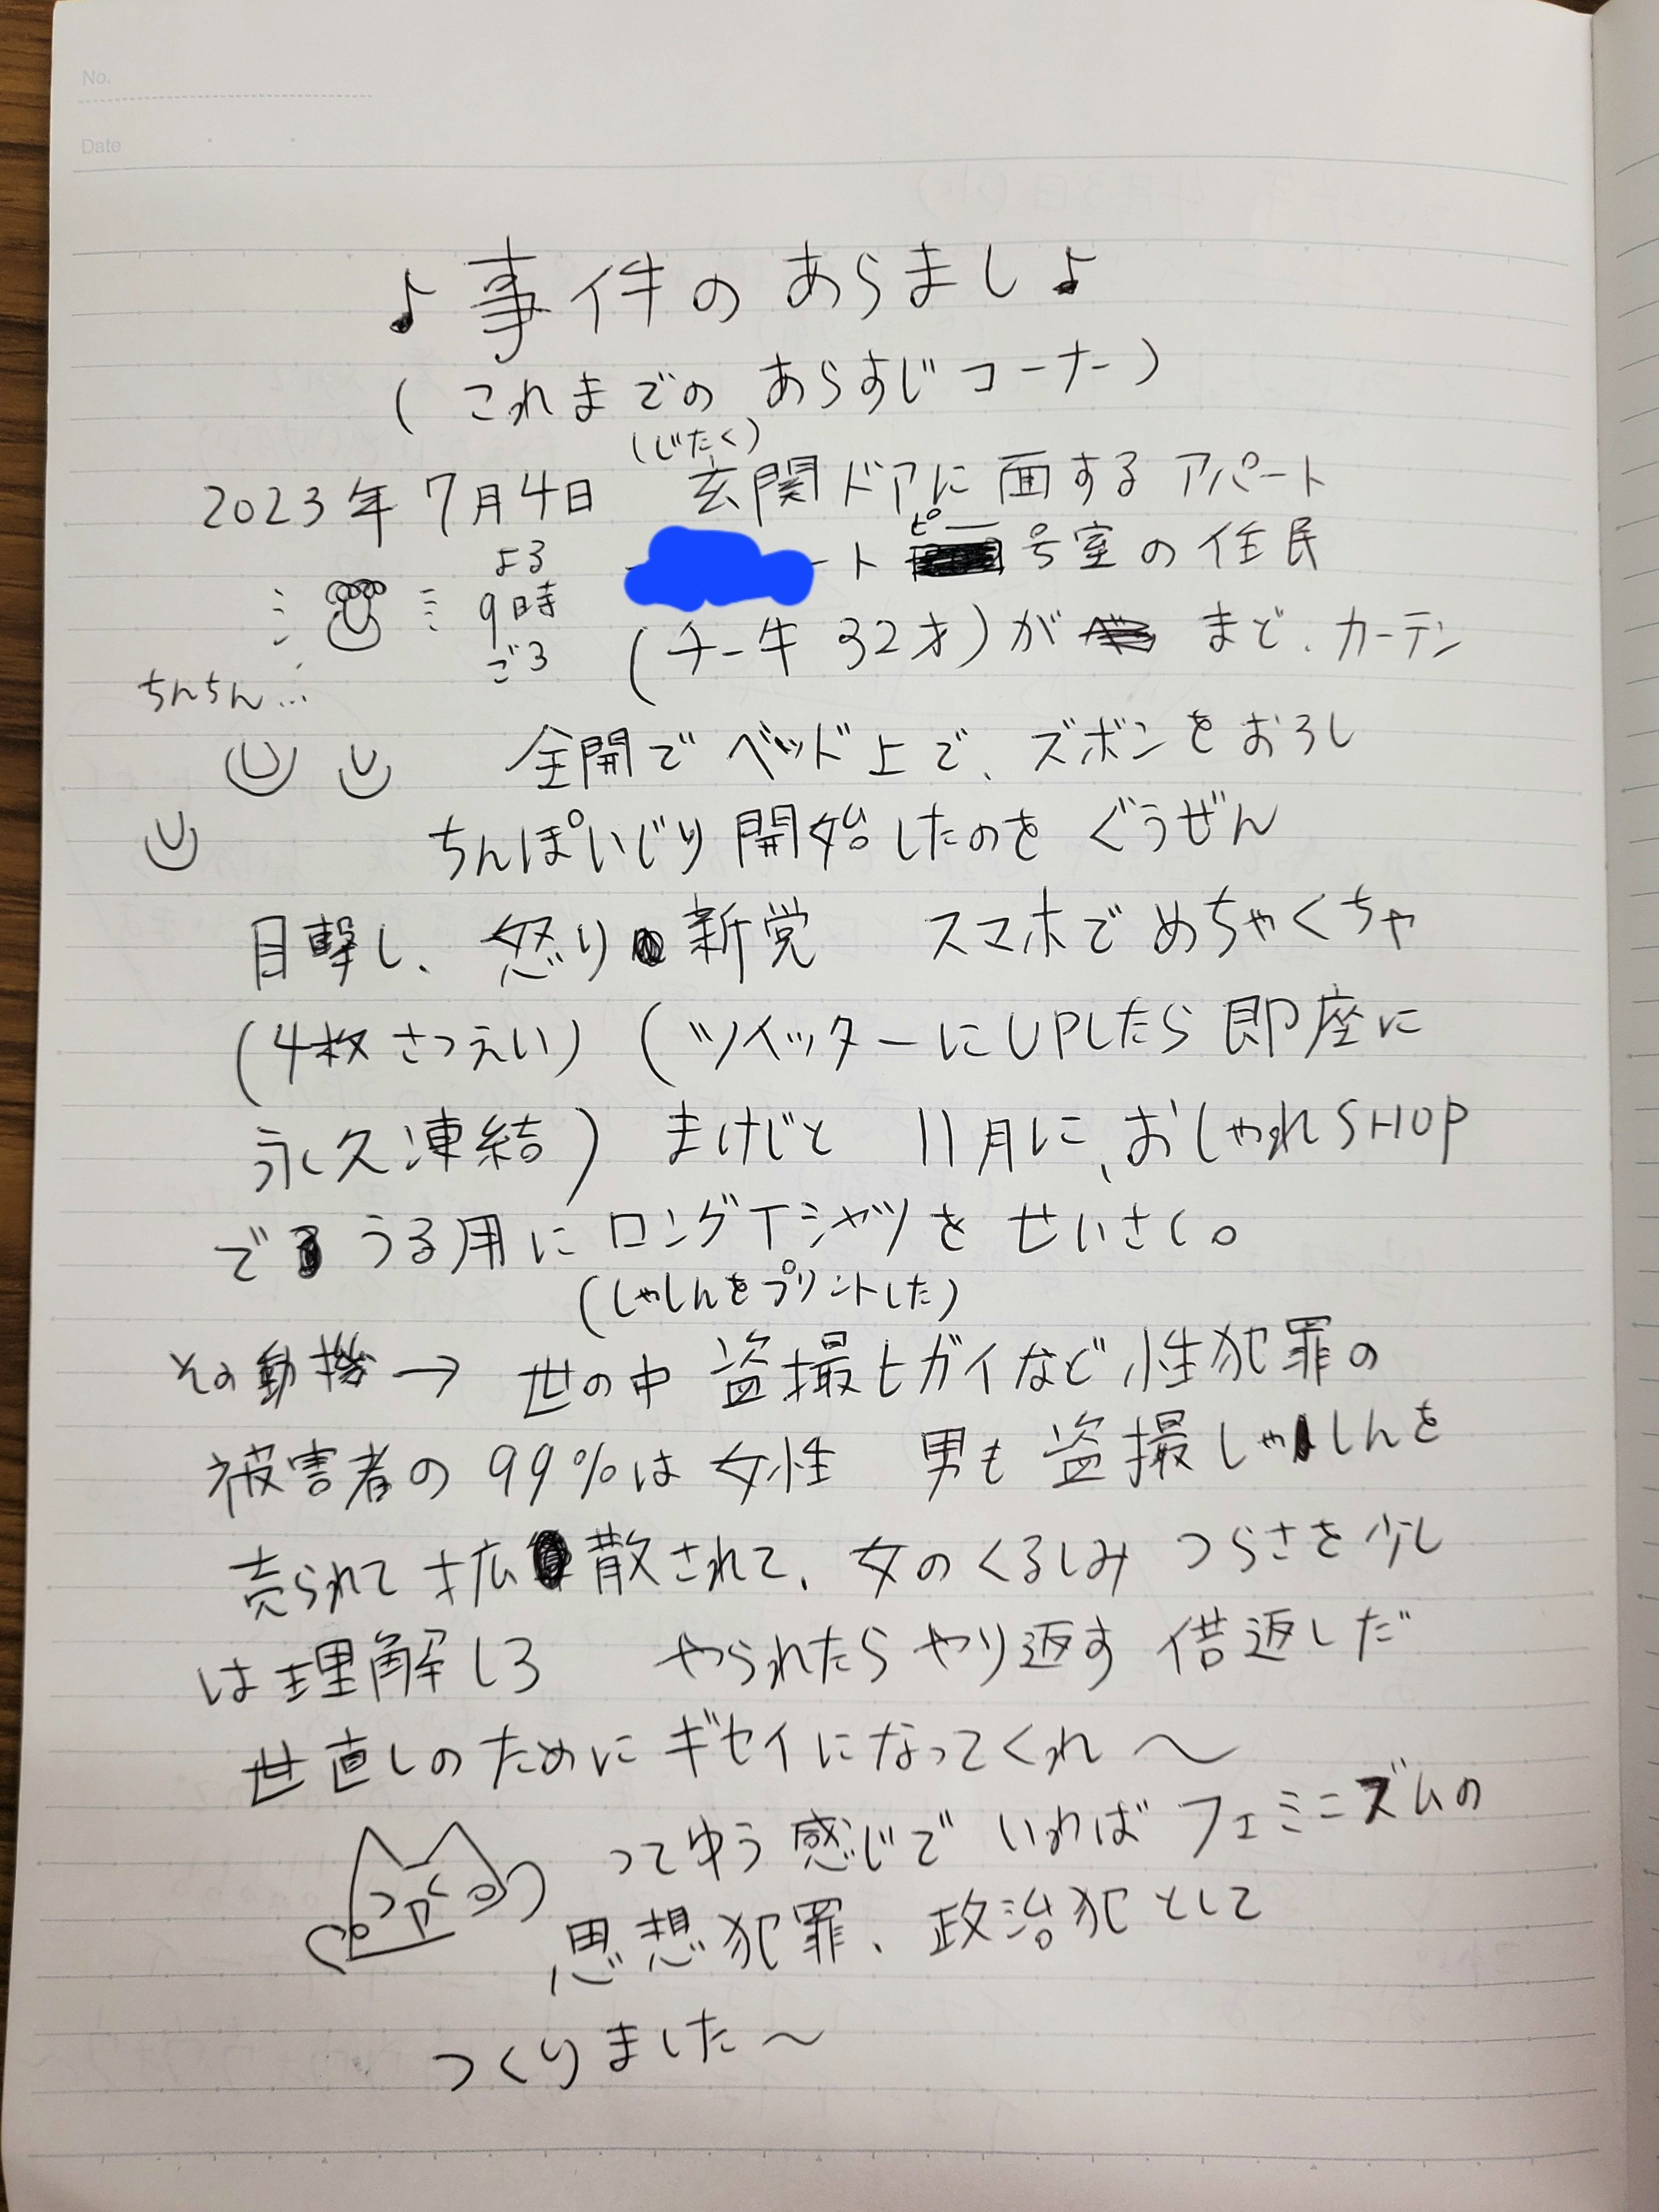 No.
Date
♪事件のあらまし♪
(これまでのあらすじコーナー)
(じたく)
2023年7月4日 玄関ドアに面するアパート
よる9時ごろ
ート ピー号室の住民
(チー牛32才)が まど、カーテン
ちんちん…
全開でベッド上で、ズボンをおろし
ちんぽいじり開始したのをぐうぜん
目撃し、怒り新党 スマホでめちゃくちゃ
(4枚さつえい)(ツイッターにUPしたら即座に
永久凍結)まけじと 11月に、おしゃれSHOP
で うる用にロングTシャツをせいさく。
(しゃしんをプリントした)
その動機→世の中 盗撮ヒガイなど性犯罪の
被害者の99%は女性 男も盗撮しゃしんを
売られて拡散されて、女のくるしみ つらさを少し
は理解しろ やられたらやり返す 借返しだ
世直しのためにギセイになってくれ〜
ってゆう感じで いわばフェミニズムの
思想犯罪、政治犯として
つくりました〜